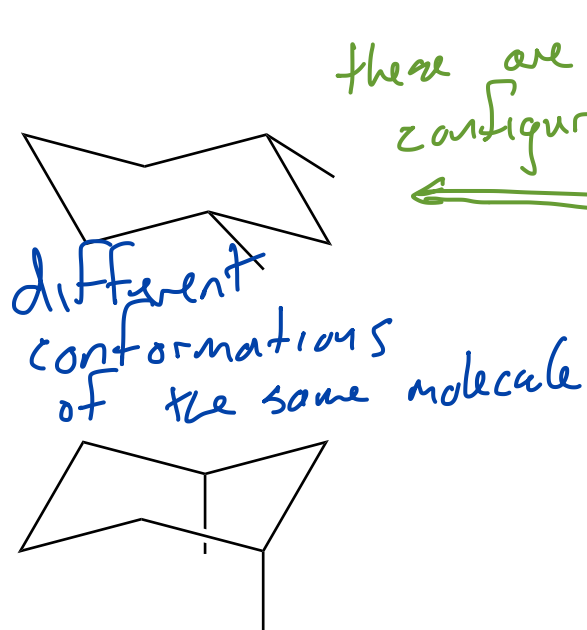 these are
configur
different
conformations
of the same molecule